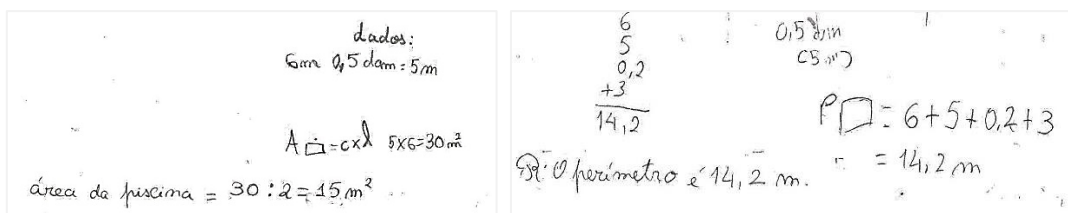 dados:
6m 0,5 dam = 5m
A▭ = c x l 5x6=30 m²
área da piscina = 30 : 2 = 15 m²
6
5
0,2
+3
14,2
0,5 dam
(5 m)
P▭ = 6+5+0,2+3
= 14,2 m
R: O perímetro é 14,2 m.